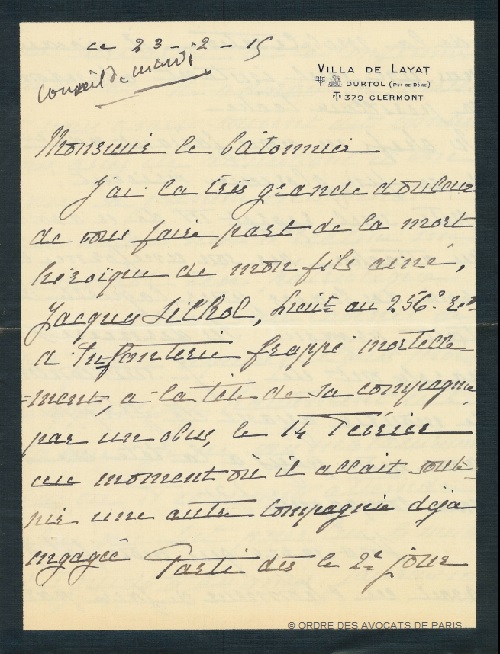 ce 23-2-15
Conseil de mardi
VILLA DE LAYAT
DURTOL (PUY DE DÔME)
379 CLERMONT
Monsieur le bâtonnier
J'ai la très grande douleur
de vous faire part de la mort
héroïque de mon fils ainé,
Jacques Silhol, Lieut au 256e Rt
d'Infanterie frappé mortelle
=ment, a la tête de sa compagnie
par un obus, le 14 Février
au moment où il allait soute
nir une autre compagnie déja
engagée Parti dès le 2e jour
© ORDRE DES AVOCATS DE PARIS